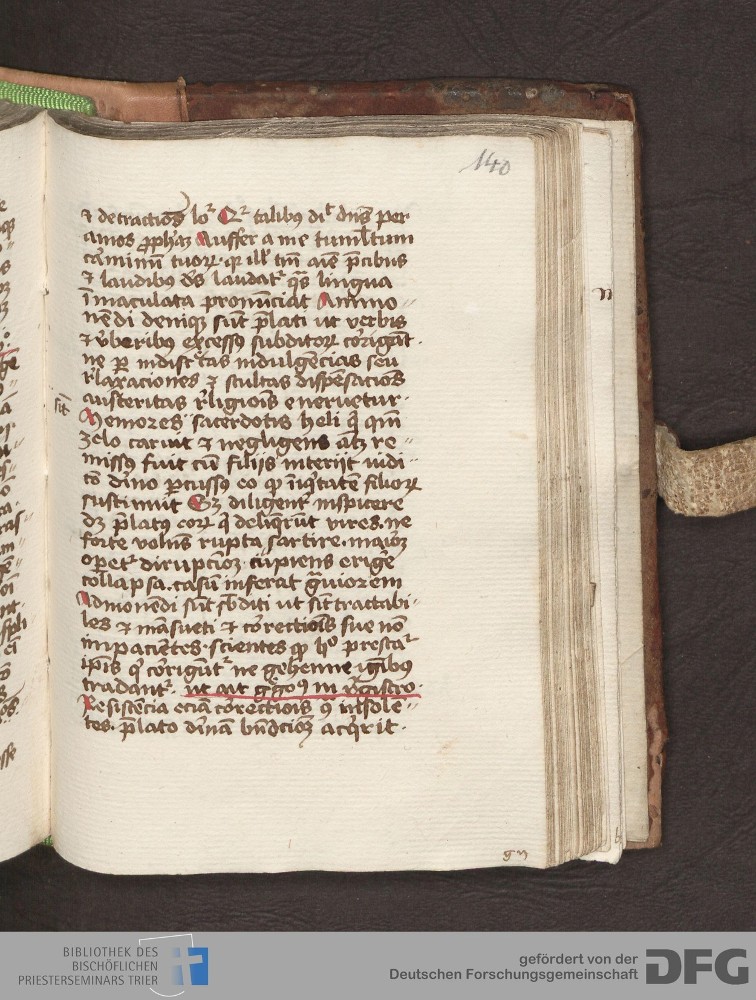 140
⁊ detractiōs loꝛ̄ Qꝛ̄ talibꝰ dic̄ dn̄s per
amos ꝓph̄aꝫ Auffer a me tumltum
carminū tuoꝝ · qꝛ illꝰ tm̄ aīe p̄cibus
⁊ laudibꝰ d̄s laudat᷑ qͣs lingua
īmaculata pronūciat Ammo
nēdi deniqꝫ sūt p̄lati ut verbis
⁊ v̄beribꝰ excessꝰ subditoꝝ corrigāt ·
ne ꝑ indisc̄tas indulgēcias seu
rl̄axaciones ⁊ stultas dispēsatiōs
austeritas rl̄igiōis eneruetur ·
sit
Memores sacerdotis heli qͥ qm̄
zelo caruit ⁊ negligens atqꝫ re
missꝰ fuit cū filijs interijt iudi
tō dīno ꝑcussꝰ eo ꝙ īiqͥtatē filioꝝ
sustinuit Sꝫ diligent᷑ inspicere
dꝫ p̄latꝰ eoꝝ qͥ deliq̄rūt vires · ne
forte volūs rupta sartire · maioꝫ
oꝑet᷑ dirupcōꝫ cupiens erige
collapsa · casū inferat g̃uiorem
Admonēdi sūt sb̄diti ut sīt tractabi
les ⁊ māsueti ⁊ correctiōis sue nō
impaciētes · scientes ꝙ hͦ prestat᷑
ip̄is qͥ corrigūt᷑ ne gehenne ignibꝰ
tradant᷑ · ut ait ḡgoꝰ in rg̃istro ·
Resistēcia eciā correctiōis ꝯ insolē
tes · p̄lato dīnā bn̄dcōꝫ acqͥrit ·
BIBLIOTHEK DES
BISCHÖFLICHEN
PRIESTERSEMINARS TRIER
gefördert von der
Deutschen Forschungsgemeinschaft
DFG